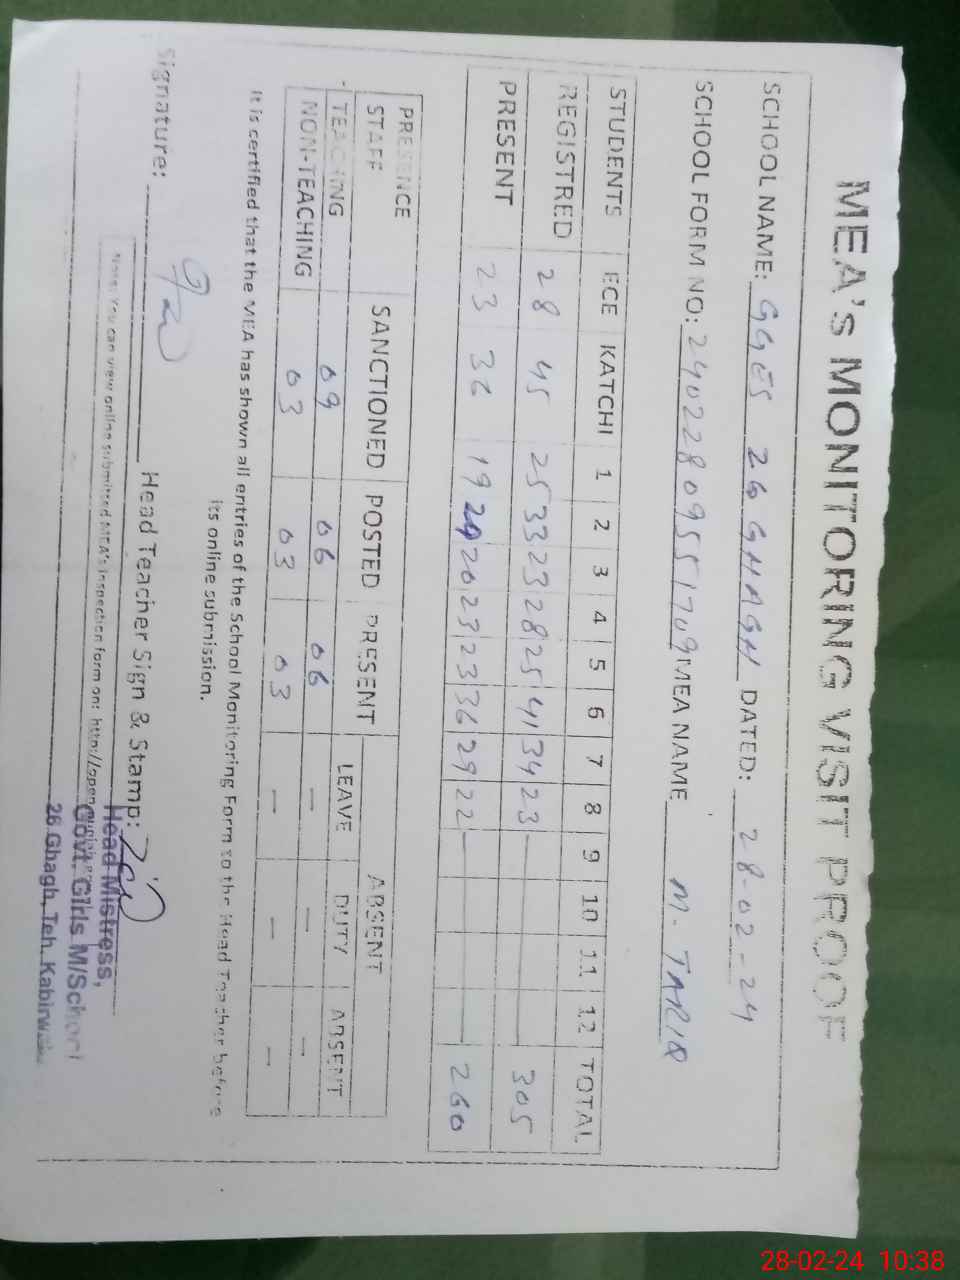 MEA's MONITORING VISIT PROOF
SCHOOL NAME: GGES 26 GHAGH DATED: 28-02-24
SCHOOL FORM NO: 24022809551709 MEA NAME M. TARIQ
STUDENTS ECE KATCHI 1 2 3 4 5 6 7 8 9 10 11 12 TOTAL
REGISTRED 28 45 25 33 23 28 25 41 34 23 305
PRESENT 23 36 19 29 20 23 23 36 29 22 260
PRESENCE STAFF SANCTIONED POSTED PRESENT ABSENT
LEAVE DUTY ABSENT
TEACHING 09 06 06 - - -
NON-TEACHING 03 03 03 - - -
It is certified that the MEA has shown all entries of the School Monitoring Form to the Head Teacher before
its online submission.
Signature: Head Teacher Sign & Stamp:
Note: You can view online submitted MEA's inspection form on: http://open
Head Mistress,
Govt. Girls M/School
26 Ghagh, Teh. Kabirwala
28-02-24 10:38